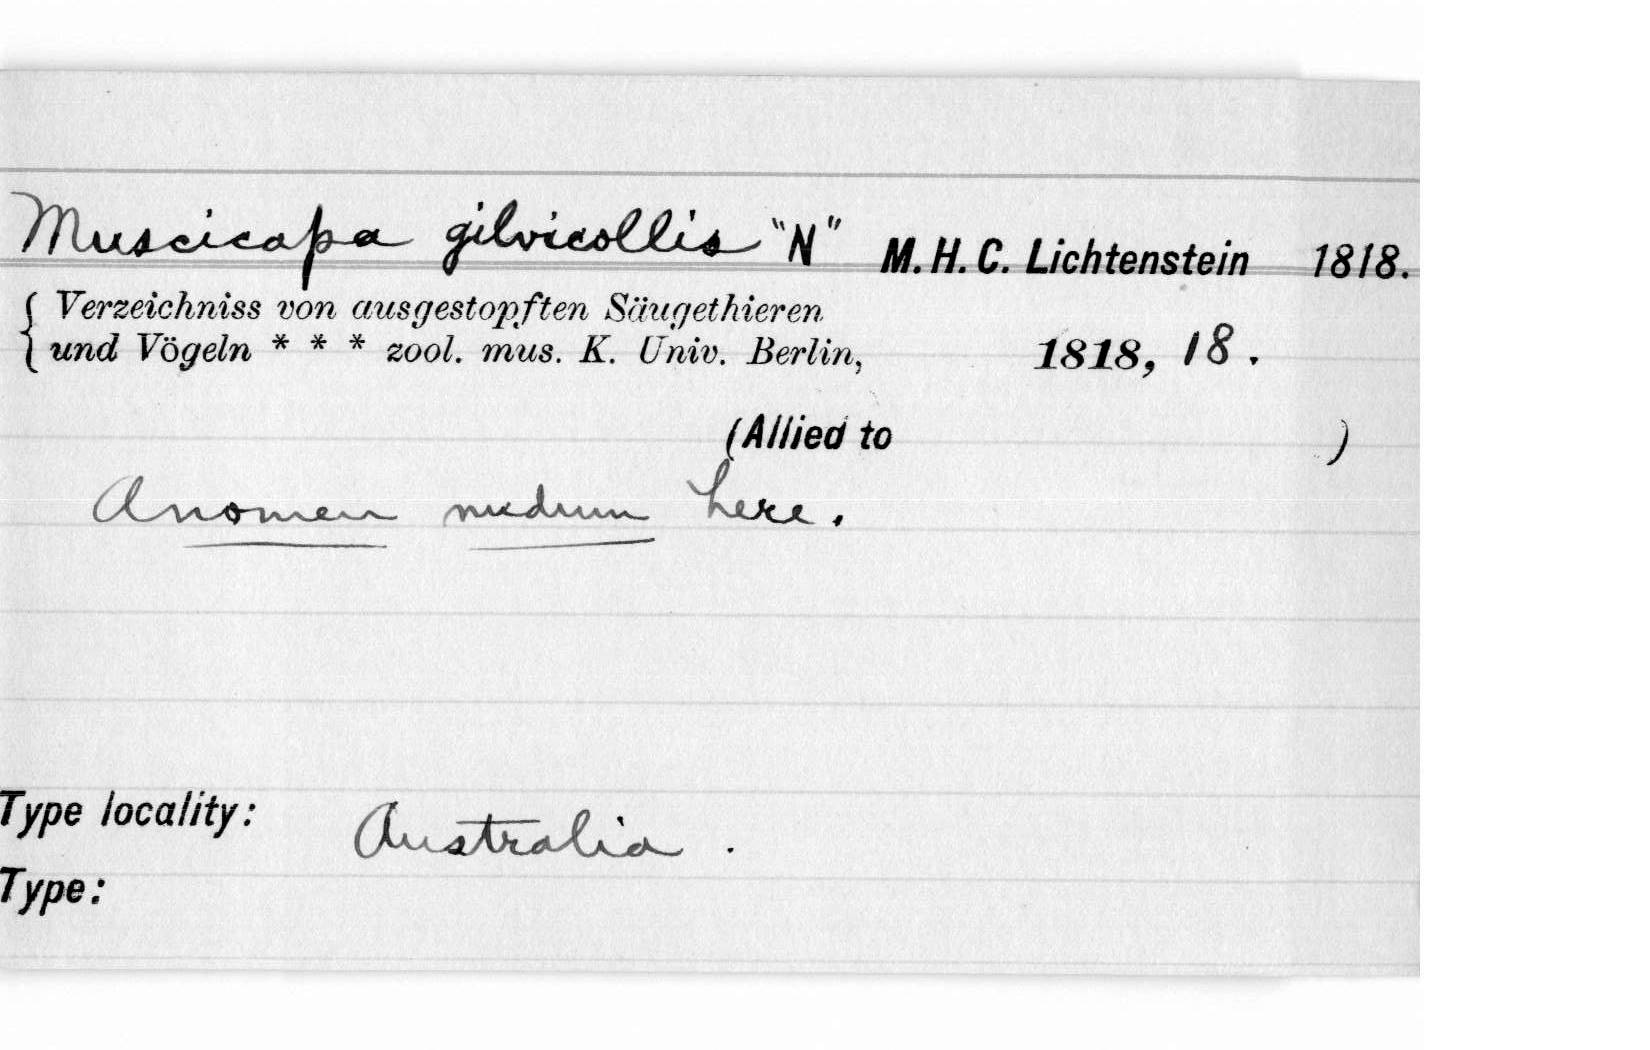 Muscicapa gilvicollis "N" M. H. C. Lichtenstein 1818.
Verzeichniss von ausgestopften Säugethieren
und Vögeln * * * zool. mus. K. Univ. Berlin, 1818, 18.
(Allied to )
A nomen nudum here.
Type locality: Australia.
Type: